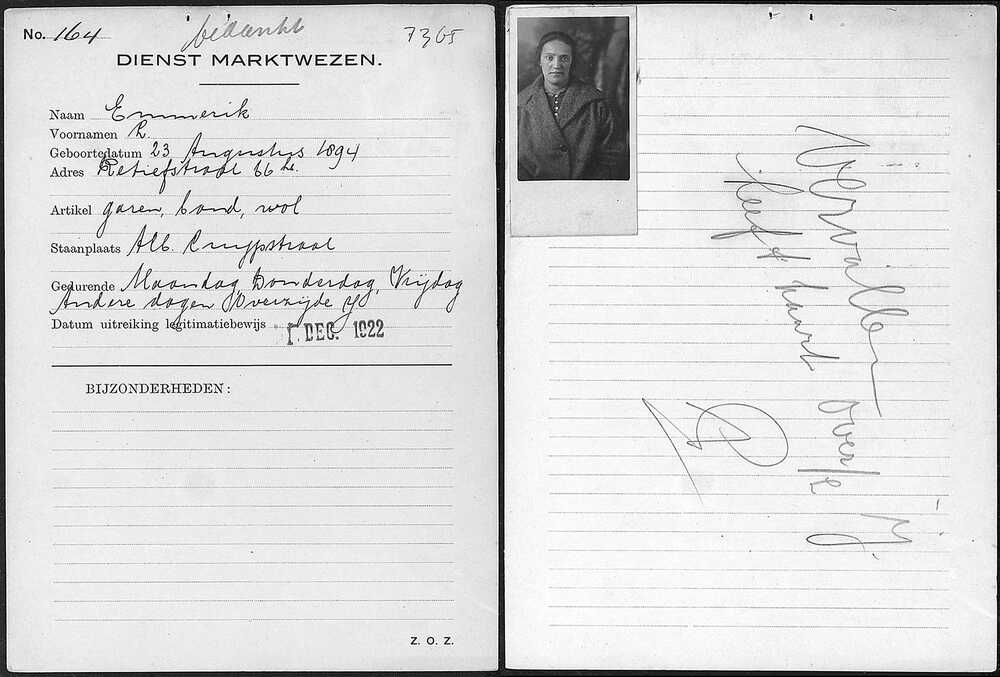 No. 164 bedankt 7365
DIENST MARKTWEZEN.
Naam Emmerik
Voornamen R.
Geboortedatum 23 Augustus 1894
Adres Retiefstraat 66 hs.
Artikel garen, band, wol
Staanplaats Alb. Cuijpstraat
Gedurende Maandag Donderdag, Vrijdag
Andere dagen Overzijde Y
Datum uitreiking legitimatiebewijs 1 DEC. 1922
BIJZONDERHEDEN:
Z. O. Z.
Vervallen
heeft kaart over 't Y.